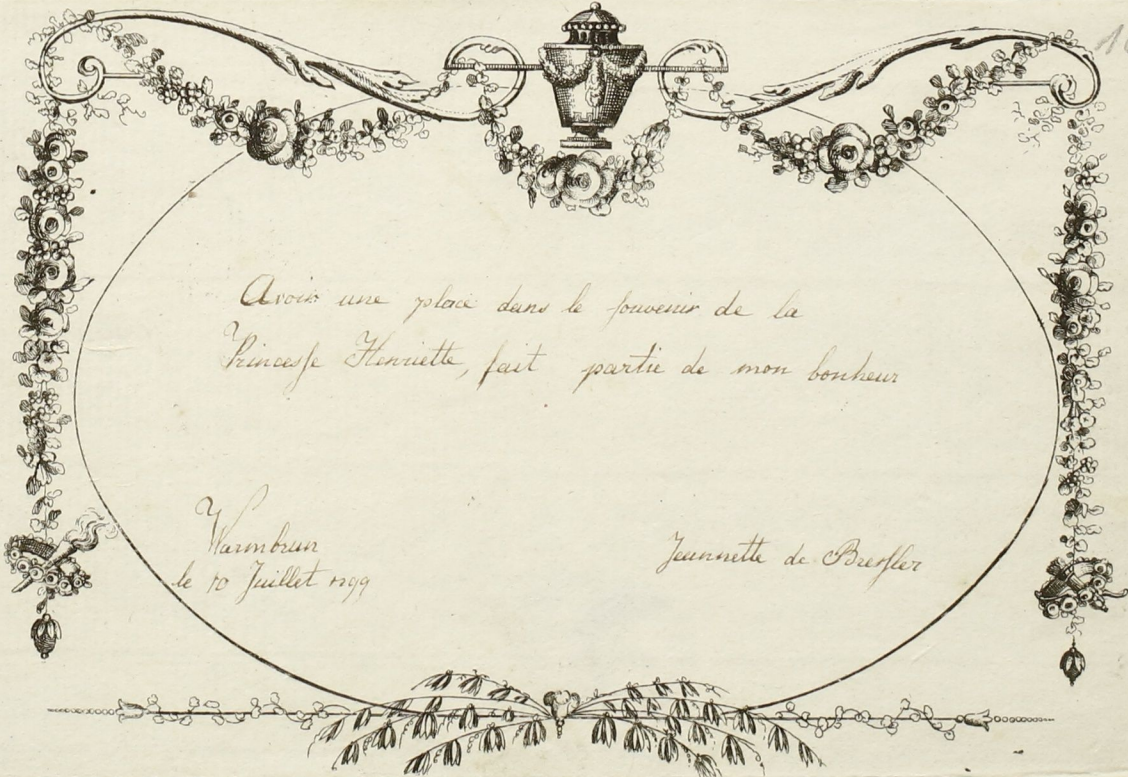 Avoir une place dans le souvenir de la
Princesse Henriette, fait partie de mon bonheur
Warmbrun
le 10 Juillet 1799
Jeannette de Bressler